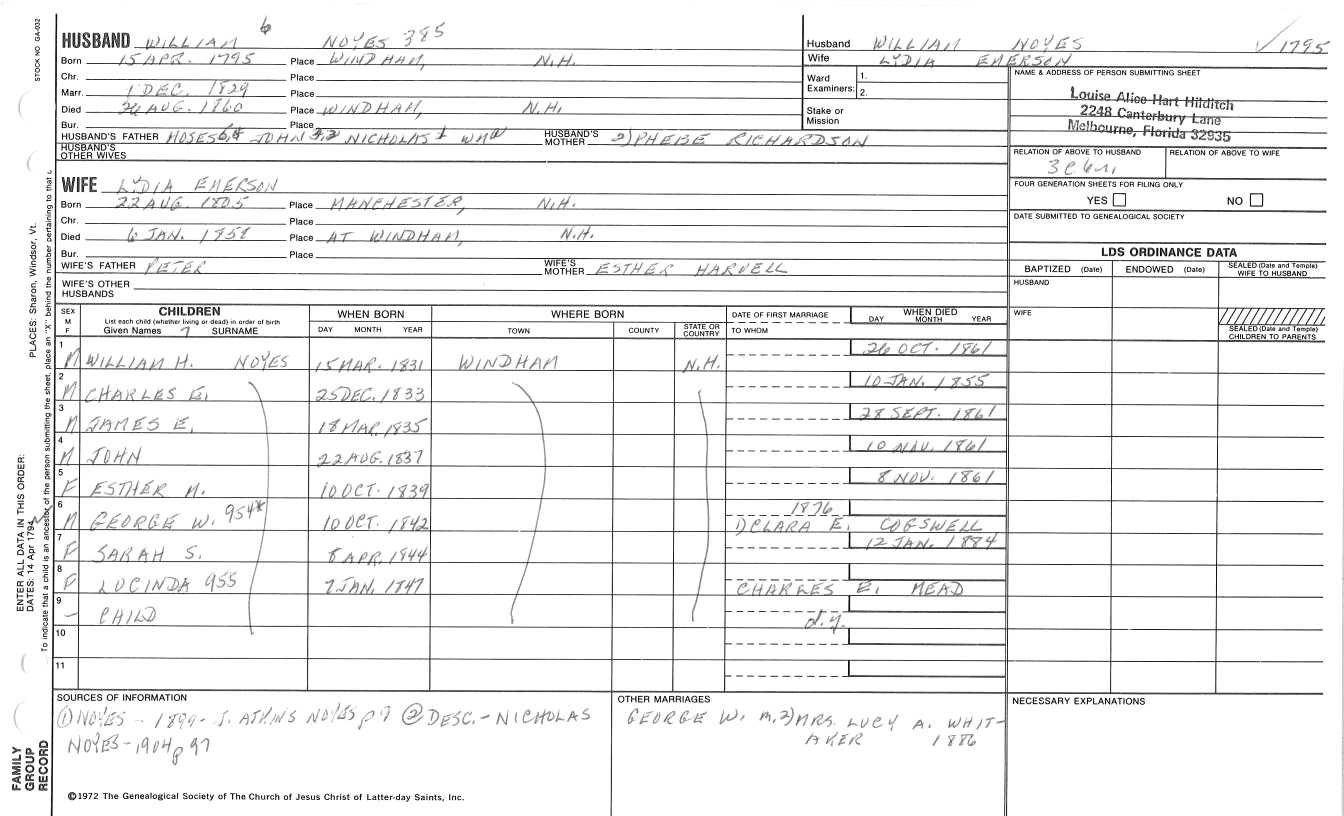 STOCK NO. GA-032
PLACES: Sharon, Windsor, Vt.
ENTER ALL DATA IN THIS ORDER:
DATES: 14 Apr 1794
To indicate that a child is an ancestor of the person submitting the sheet, place an "X" behind the number pertaining to that c
FAMILY GROUP RECORD
HUSBAND WILLIAM 6 NOYES 385
Born 15 APR. 1795 Place WINDHAM, N.H.
Chr. Place
Marr. 1 DEC. 1829 Place
Died 26 AUG. 1860 Place WINDHAM, N.H.
Bur. Place
HUSBAND'S FATHER MOSES JOHN NICHOLAS WM HUSBAND'S MOTHER 2) PHEBE RICHARDSON
HUSBAND'S OTHER WIVES
WIFE LYDIA EMERSON
Born 22 AUG. 1805 Place MANCHESTER, N.H.
Chr. Place
Died 6 JAN. 1858 Place AT WINDHAM, N.H.
Bur. Place
WIFE'S FATHER PETER WIFE'S MOTHER ESTHER HARVELL
WIFE'S OTHER HUSBANDS
Husband WILLIAM NOYES √ 1795
Wife LYDIA EMERSON
Ward Examiners: 1. 2.
Stake or Mission
NAME & ADDRESS OF PERSON SUBMITTING SHEET
Louise Alice Hart Hilditch
2248 Canterbury Lane
Melbourne, Florida 32935
RELATION OF ABOVE TO HUSBAND RELATION OF ABOVE TO WIFE
FOUR GENERATION SHEETS FOR FILING ONLY
YES NO
DATE SUBMITTED TO GENEALOGICAL SOCIETY
LDS ORDINANCE DATA
BAPTIZED (Date) ENDOWED (Date) SEALED (Date and Temple) WIFE TO HUSBAND
HUSBAND
WIFE
SEALED (Date and Temple) CHILDREN TO PARENTS
SEX M F CHILDREN WHEN BORN WHERE BORN DATE OF FIRST MARRIAGE WHEN DIED
List each child (whether living or dead) in order of birth
Given Names SURNAME DAY MONTH YEAR TOWN COUNTY STATE OR COUNTRY TO WHOM DAY MONTH YEAR
1 M WILLIAM H. NOYES 15 MAR. 1831 WINDHAM N.H. 26 OCT. 1861
2 M CHARLES E. 25 DEC. 1833 10 JAN. 1855
3 M JAMES E. 18 MAR. 1835 28 SEPT. 1861
4 M JOHN 22 AUG. 1837 10 NOV. 1861
5 F ESTHER M. 10 OCT. 1839 8 NOV. 1861
6 M GEORGE W. 954* 10 OCT. 1842 1876 1) CLARA E. COGSWELL
7 F SARAH S. 8 APR. 1844 12 JAN. 1884
8 F LUCINDA 955 7 JAN. 1847 CHARLES E. MEAD
9 – CHILD d.y.
10
11
SOURCES OF INFORMATION
① NOYES – 1899 – J. ATKINS NOYES p 9 ② DESC. – NICHOLAS
NOYES – 1904 p 97
OTHER MARRIAGES
GEORGE W. m. 2) MRS. LUCY A. WHIT-
AKER 1886
NECESSARY EXPLANATIONS
©1972 The Genealogical Society of The Church of Jesus Christ of Latter-day Saints, Inc.